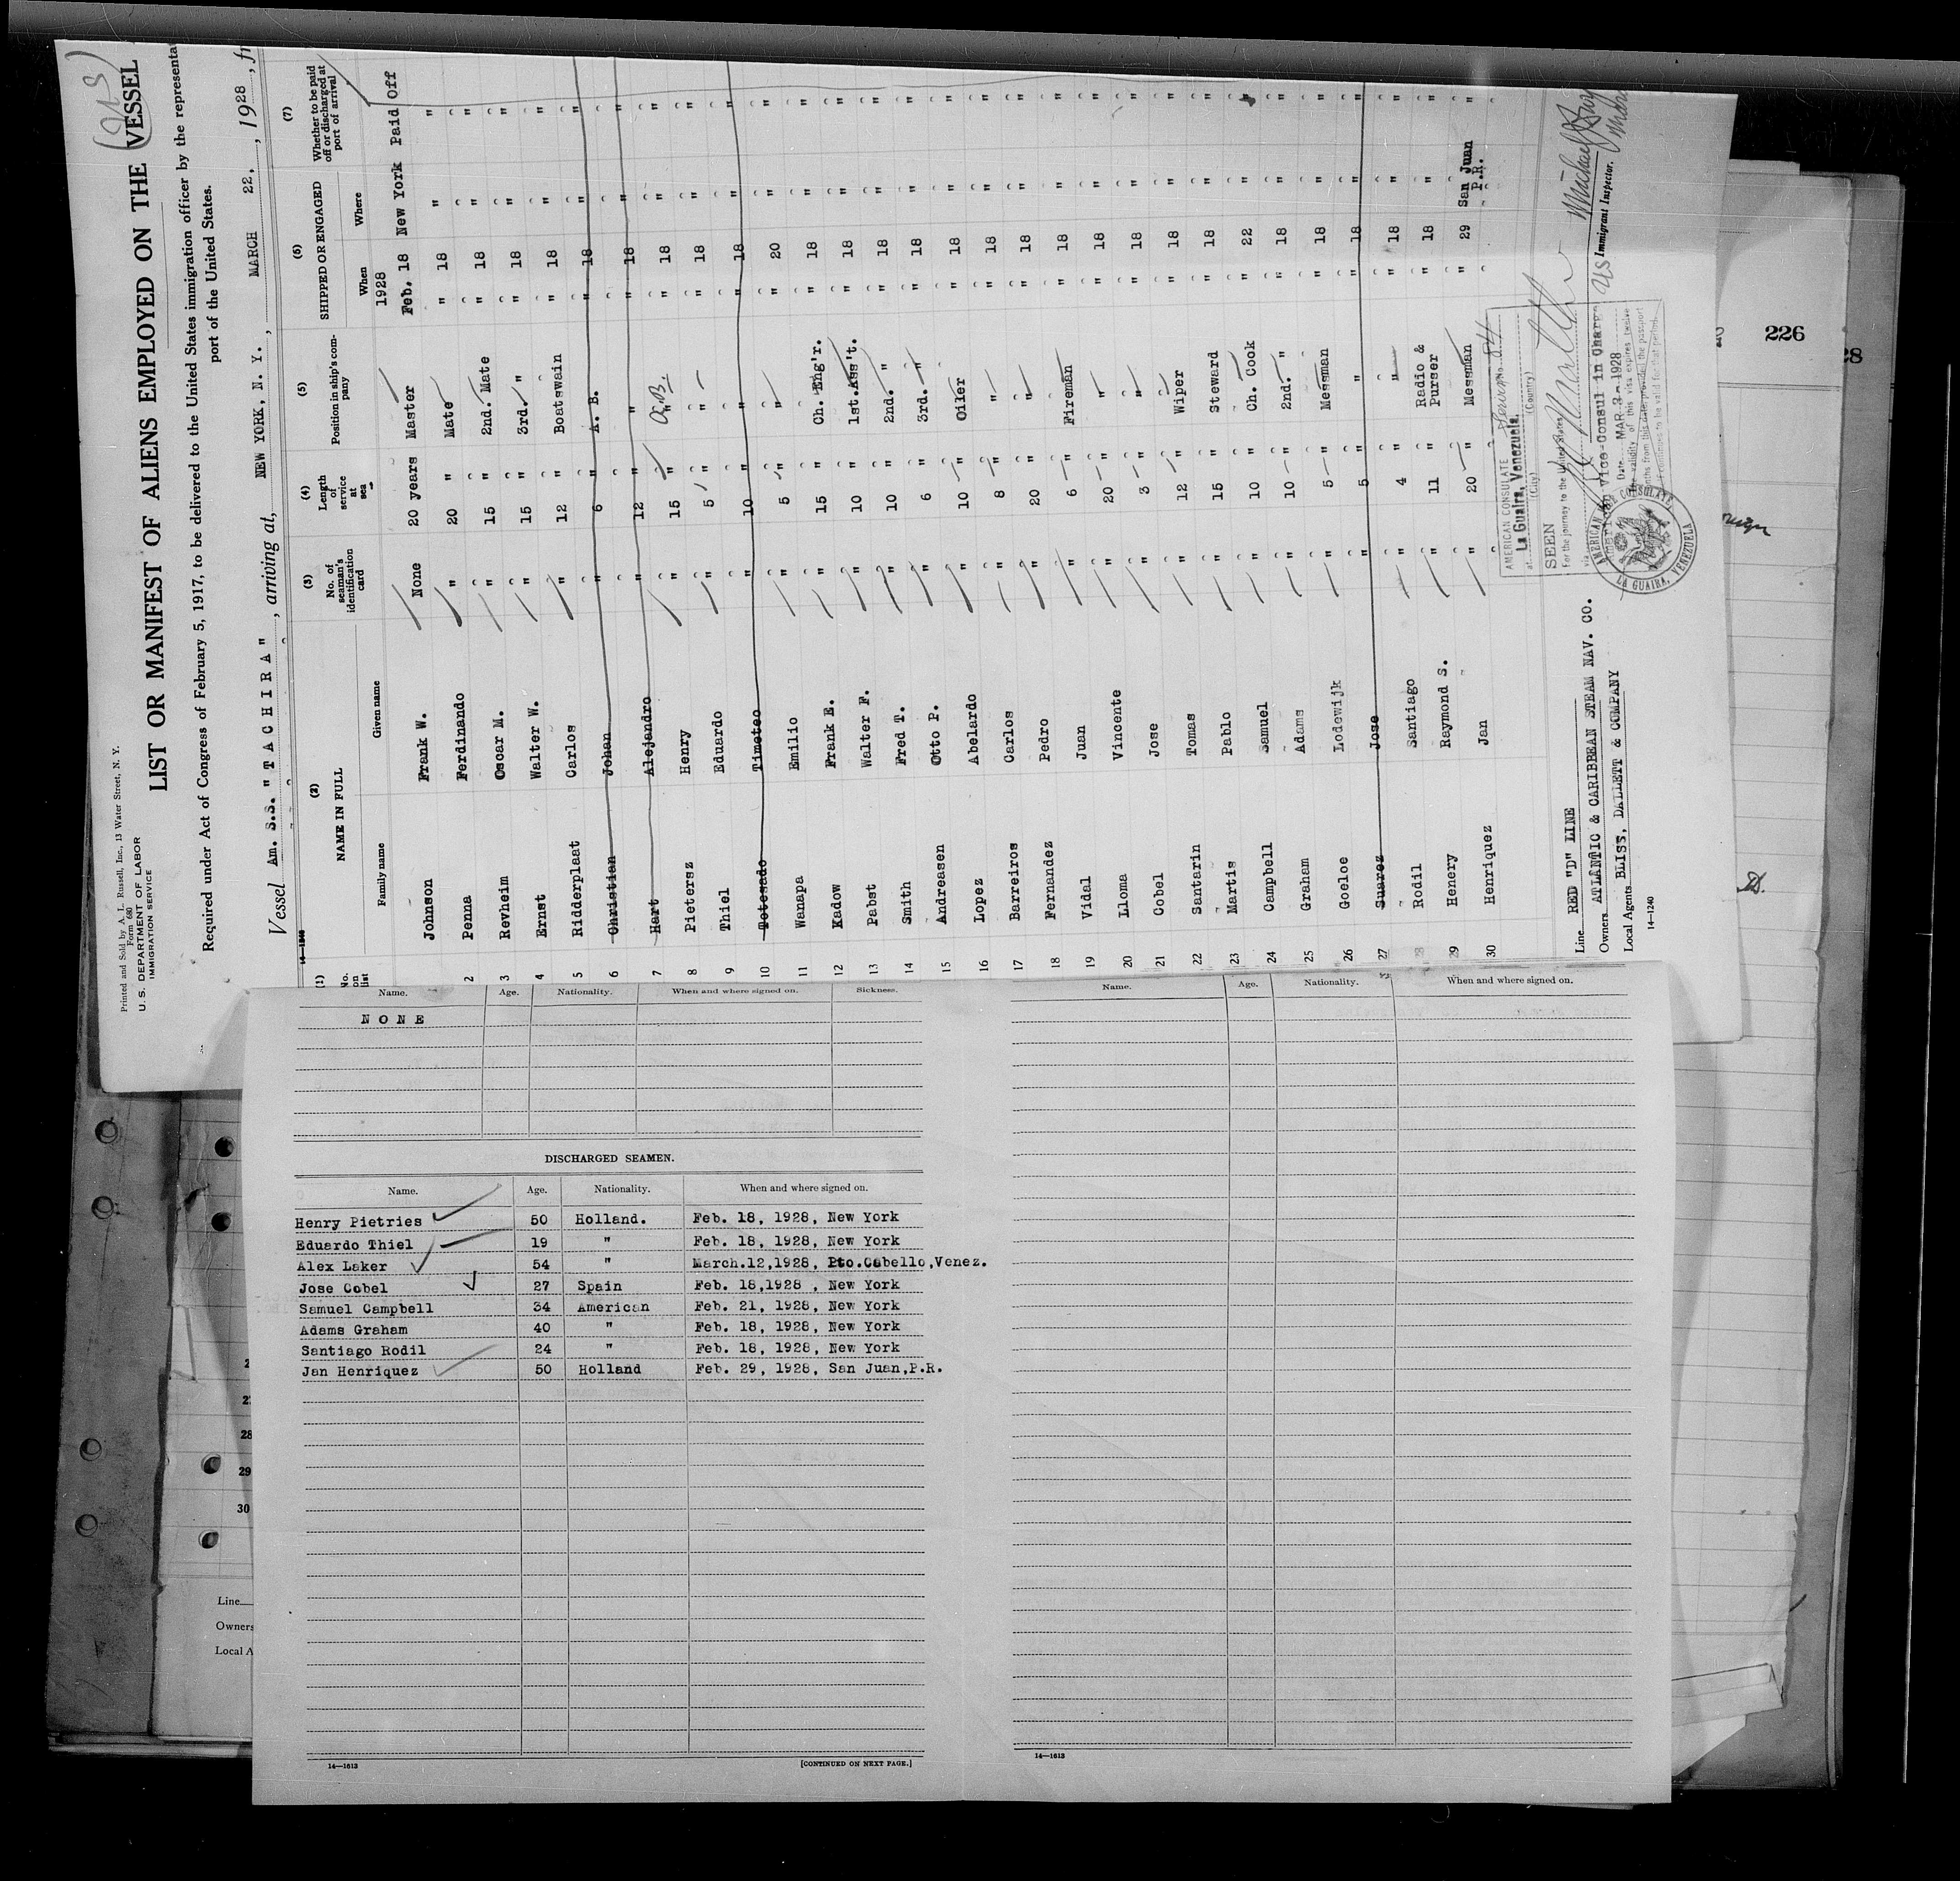 Printed and Sold by A. L. Russell, Inc., 13 Water Street, N. Y.
Form 680
U. S. DEPARTMENT OF LABOR
IMMIGRATION SERVICE
(213)
LIST OR MANIFEST OF ALIENS EMPLOYED ON THE VESSEL
Required under Act of Congress of February 5, 1917, to be delivered to the United States immigration officer by the representa
port of the United States.
Vessel Am. S.S. " T A C H I R A " , arriving at, NEW YORK, N. Y. , MARCH 22, , 1928 , fr
14-1240
(1) (2) (3) (4) (5) (6) (7)
No. on list NAME IN FULL No. of seaman's identification card Length of service at sea Position in ship's company SHIPPED OR ENGAGED Whether to be paid off or discharged at port of arrival
Family name Given name When Where
1928
Johnson Frank W. None 20 years Master Feb. 18 New York Paid Off
2 Penna Ferdinando " 20 " Mate " 18 " "
3 Revheim Oscar M. " 15 " 2nd. Mate " 18 " "
4 Ernst Walter W. " 15 " 3rd. " " 18 " "
5 Ridderplaat Carlos " 12 " Boatswain " 18 " "
6 Christian Johan " 6 " A. B. " 18 " "
7 Hart Alejandro " 12 " " " 18 " "
8 Pietersz Henry " 15 " A.B. " 18 " "
9 Thiel Eduardo " 5 " " " 18 " "
10 Totesado Timoteo " 10 " " " 18 " "
11 Wanapa Emilio " 5 " " " 20 " "
12 Kadow Frank E. " 15 " Ch. Eng'r. " 18 " "
13 Pabst Walter F. " 10 " 1st.Ass't. " 18 " "
14 Smith Fred T. " 10 " 2nd. " " 18 " "
15 Andreasen Otto P. " 6 " 3rd. " " 18 " "
16 Lopez Abelardo " 10 " Oiler " 18 " "
17 Barreiros Carlos " 8 " " " 18 " "
18 Fernandez Pedro " 20 " " " 18 " "
19 Vidal Juan " 6 " Fireman " 18 " "
20 Lloma Vincente " 20 " " " 18 " "
21 Cobel Jose " 3 " " " 18 " "
22 Santarin Tomas " 12 " Wiper " 18 " "
23 Martis Pablo " 15 " Steward " 18 " "
24 Campbell Samuel " 10 " Ch. Cook " 22 " "
25 Graham Adams " 10 " 2nd. " " 18 " "
26 Goeloe Lodewijk " 5 " Messman " 18 " "
27 Suarez Jose " 5 " " " 18 " "
28 Rodil Santiago " 4 " " " 18 " "
29 Henery Raymond S. " 11 " Radio & Purser " 18 " "
30 Henriquez Jan " 20 " Messman " 29 San Juan P.R. "
Line RED "D" LINE
Owners ATLANTIC & CARIBBEAN STEAM NAV. CO.
Local Agents BLISS, DALLETT & COMPANY
14—1240
AMERICAN CONSULATE
at La Guaira, Venezuela.
(City) (Country)
SEEN
For the journey to the United States
via
Vice-Consul in Charge
Date MAR 3 - 1928
The validity of this visa expires twelve
months from this date provided the passport
continues to be valid for that period.
AMERICAN CONSULATE
LA GUAIRA, VENEZUELA
US Immigrant Inspector.
226
28
Name. Age. Nationality. When and where signed on. Sickness.
N O N E
DISCHARGED SEAMEN.
Name. Age. Nationality. When and where signed on.
Henry Pietries 50 Holland. Feb. 18, 1928, New York
Eduardo Thiel 19 " Feb. 18, 1928, New York
Alex Laker 54 " March.12,1928, Pto.Cabello,Venez.
Jose Cobel 27 Spain Feb. 18,1928 , New York
Samuel Campbell 34 American Feb. 21, 1928, New York
Adams Graham 40 " Feb. 18, 1928, New York
Santiago Rodil 24 " Feb. 18, 1928, New York
Jan Henriquez 50 Holland Feb. 29, 1928, San Juan,P.R.
14—1613
[CONTINUED ON NEXT PAGE.]
Name. Age. Nationality. When and where signed on.
14—1613
28
29
30
Line
Owners
Local A